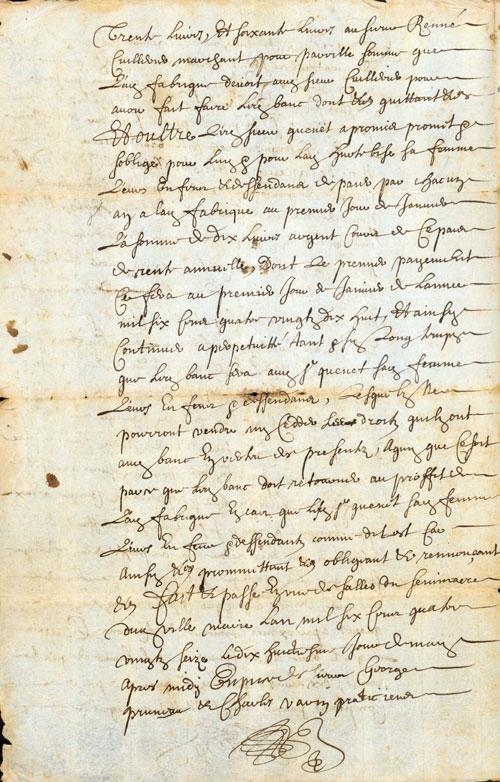 Trente livres, et soixante livres au sieur Renné
Cuillerier marchant pour pareille somme que
lad fabrique devoit aud sieur Cuillerier pour
avoir fait faire led banc dont &c quittant &c
Et oultre led sieur quenet a promis promet et
soblige pour luy et pour lad sa femme
leurs Enfens et dessendans de paier par chacun
an a lad fabrique au premier Jour de Janvier
la somme de dix livres argent Cours de Ce pais
de rente annuelle, Dont le premier payement
Ce fera au premier Jour de Janvier de lannée
mil six Cens quatre vingtz dix huit, Et ainsy
Continuer a perpetuitté tant et sy Long temps
que led banc sera aud Sr quenet sad femme
leurs Enfens et dessendans, Lesquelz Ne
pourront vendre ny Cedder leurs droitz quilz ont
aud banc En vertu des presentes, a quy que Ce soit
parce que led banc doit retourner au proffit de
Lad fabrique En cas que lesd Sr quenet sad femme
leurs Enfens et dessendants comme dit est Car
Ainsy &c prommettant &c obligeant &c renonçant
&c fait et passé En une des salles du seminaire
dud ville marie Lan mil six Cens quatre
vingtz seize le dix huictiesme Jour de mars
apres midy En presence des sieurs George
pruneau et Charles vavin praticiens